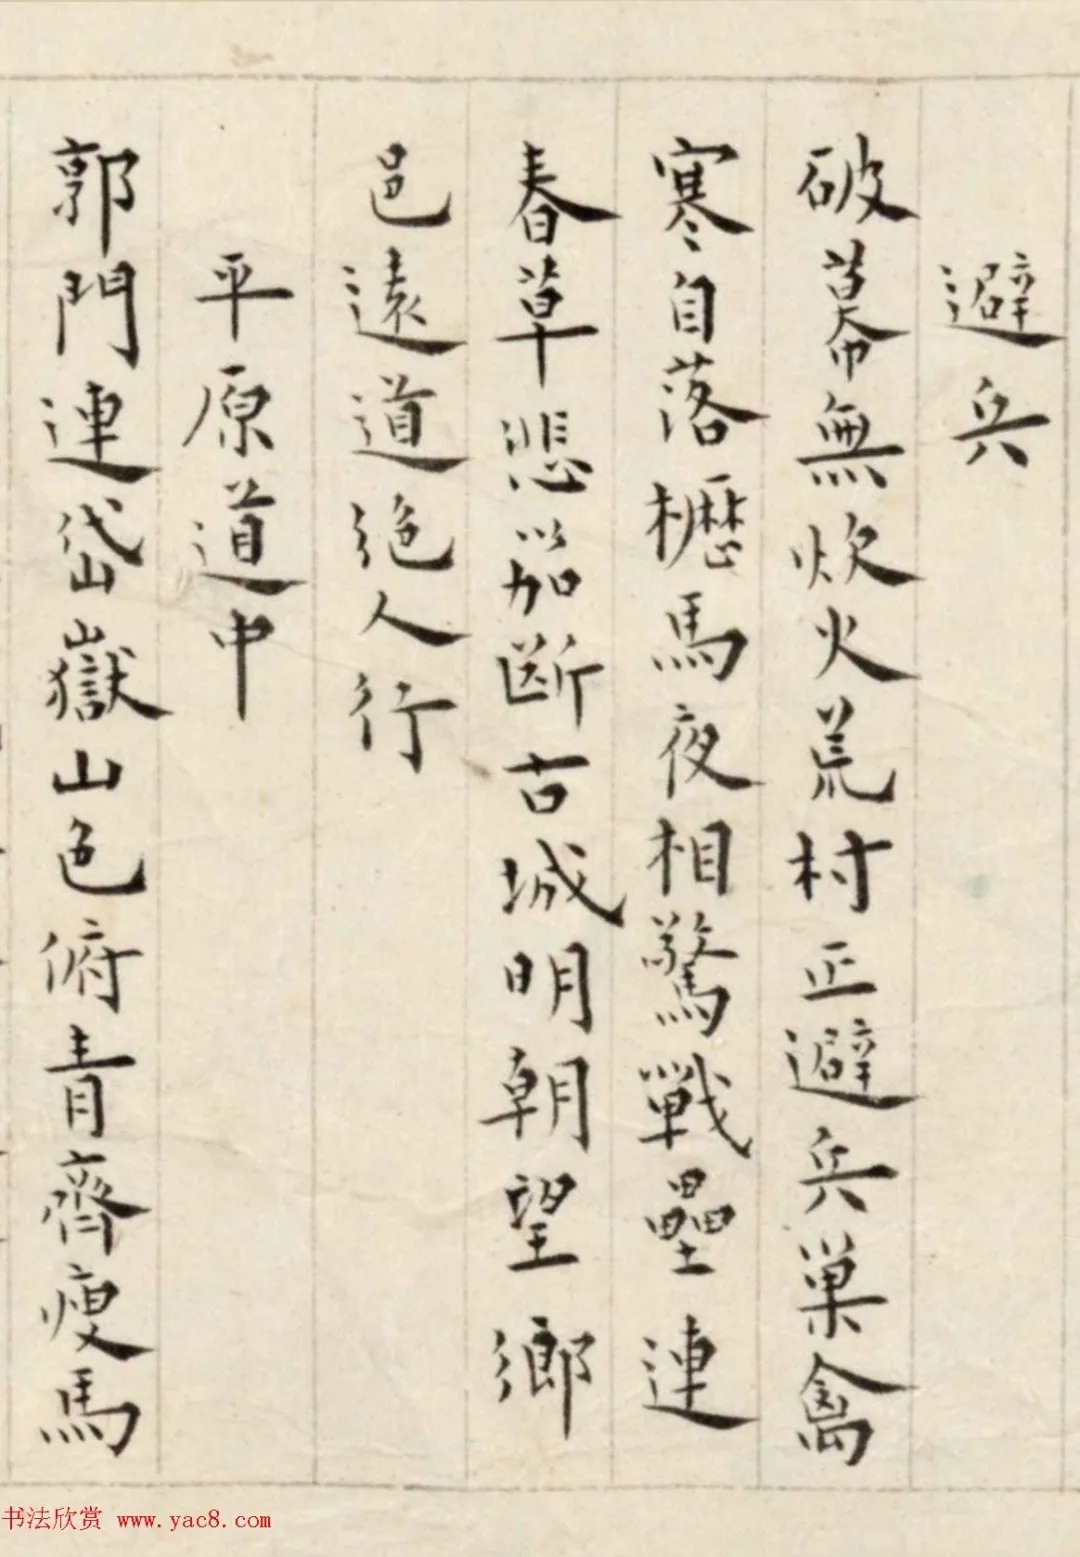 避兵
破幕無炊火荒村正避兵巢禽
寒自落櫪馬夜相驚戰壘連
春草悲笳斷古城明朝望鄉
邑遠道絕人行
平原道中
郭門連岱嶽山色俯青齊瘦馬
书法欣赏 www.yac8.com